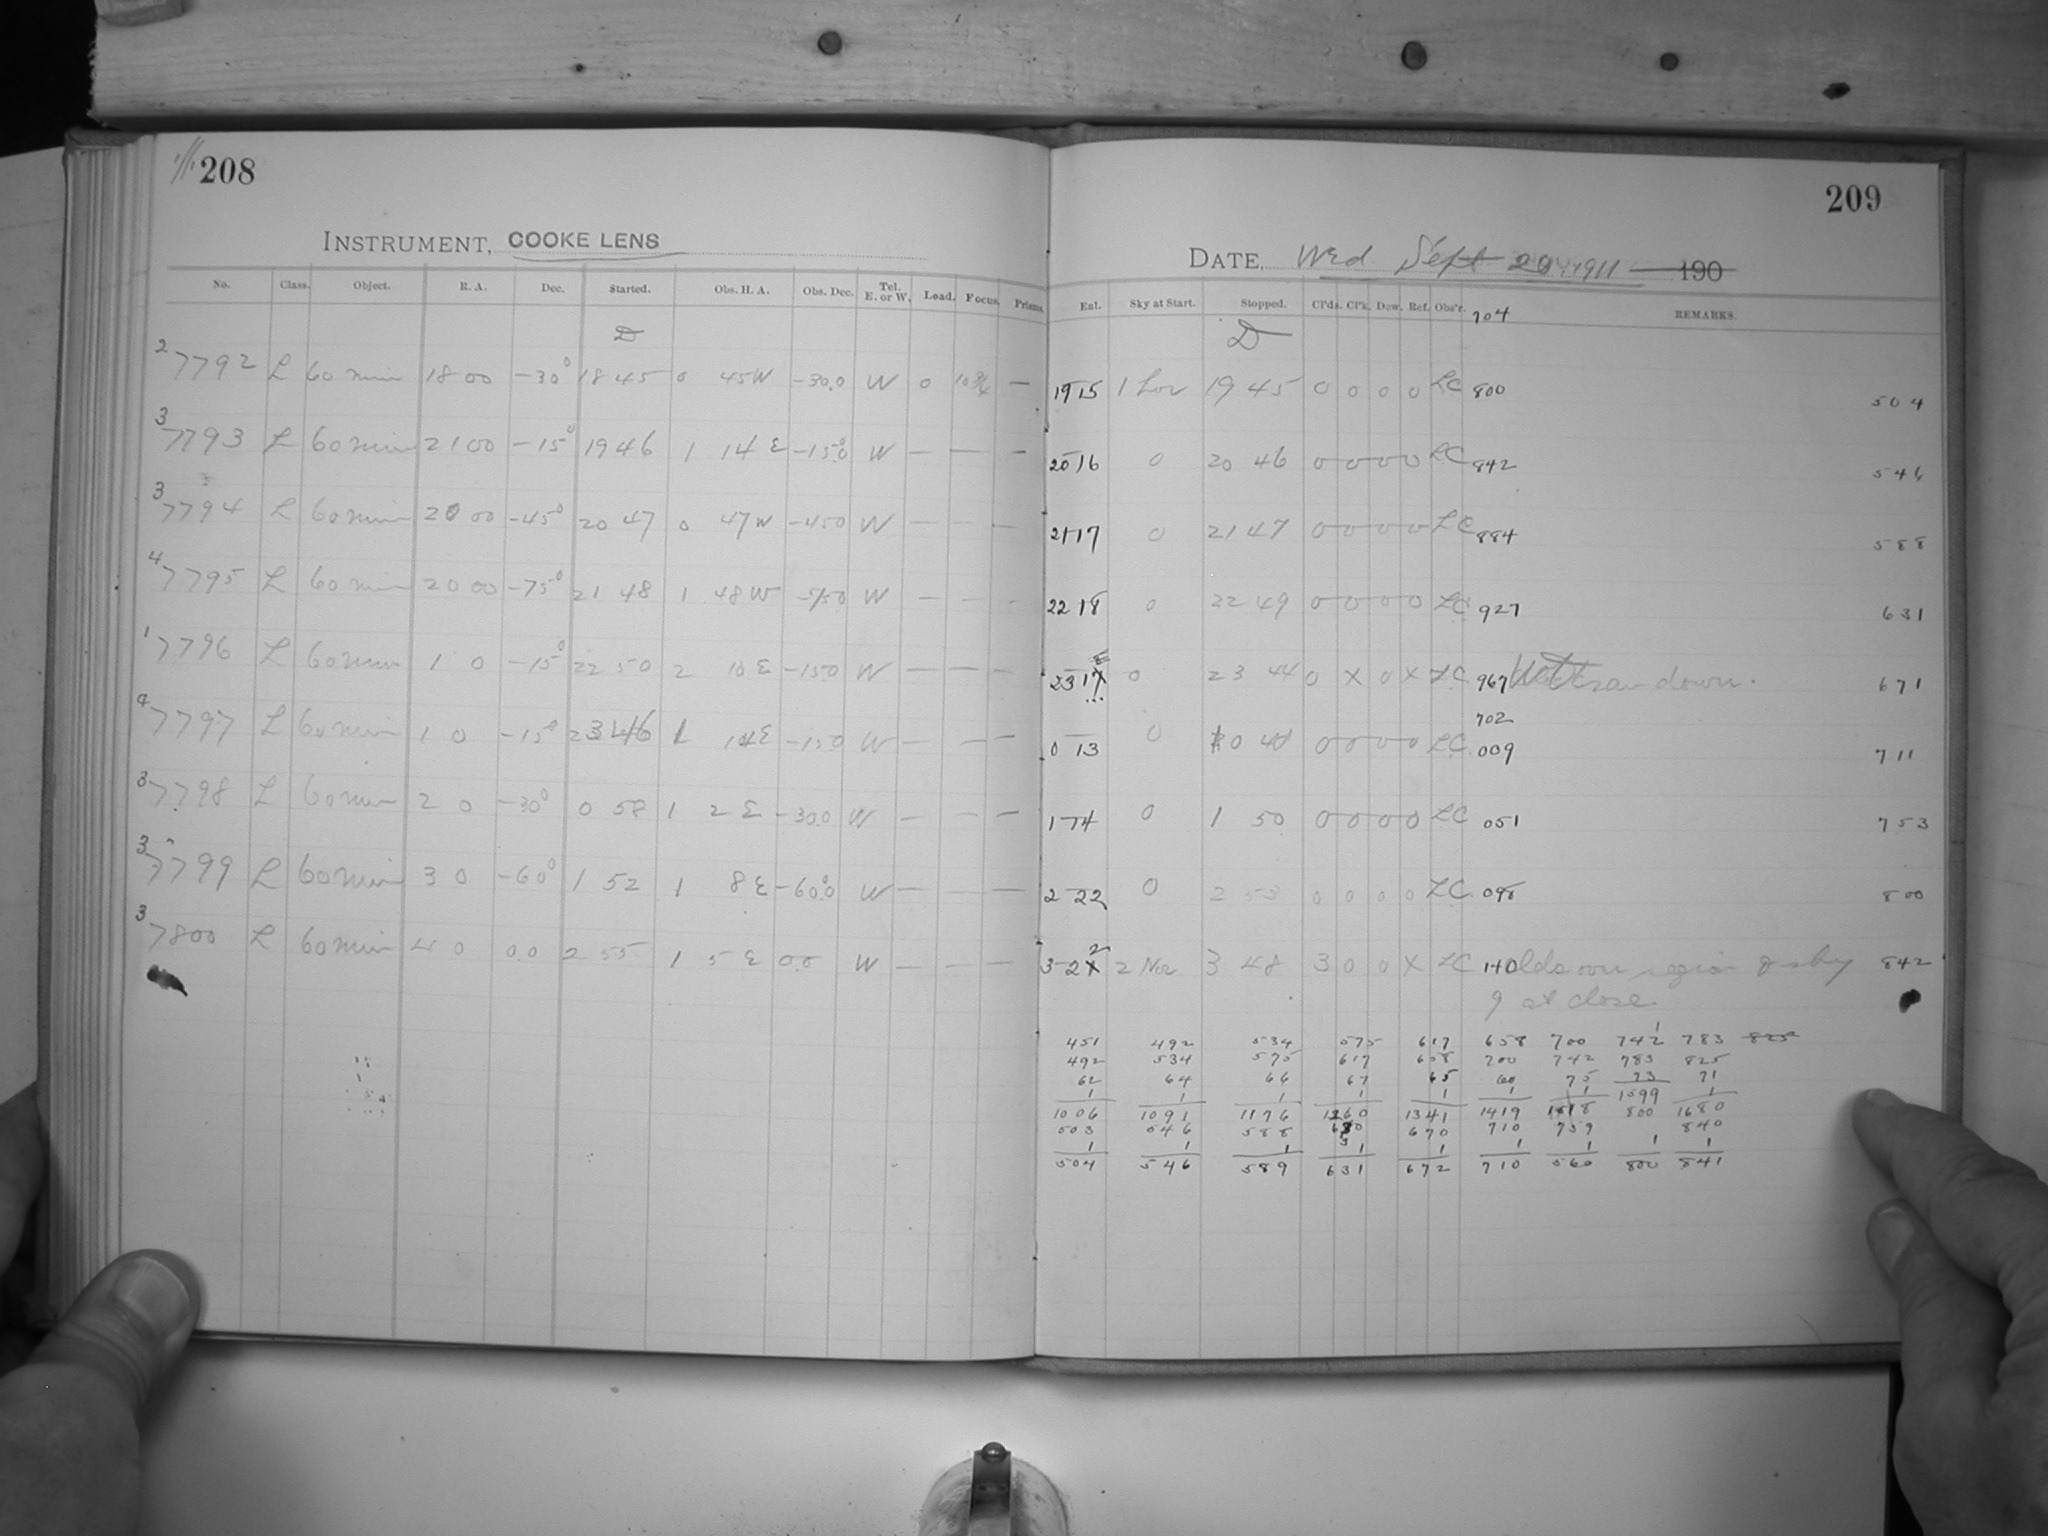 208
INSTRUMENT, COOKE LENS
No. Class. Object. R. A. Dec. Started. Obs. H. A. Obs. Dec. Tel. E. or W. Load. Focus. Prisms.
D
2 7792 L 60 min 18 00 -30° 18 45 0 45 W -30.0 W 0 10 3/4 —
3 7793 L 60 min 21 00 -15° 19 46 1 14 E -15.0 W — — —
3 7794 L 60 min 20 00 -45° 20 47 0 47 W -45 0 W — — —
4 7795 L 60 min 20 00 -75° 21 48 1 48 W -75 0 W — — —
1 7796 L 60 min 1 0 -15° 22 50 2 10 E -15 0 W — — —
4 7797 L 60 min 1 0 -15° 23 46 1 14 E -15 0 W — — —
3 7798 L 60 min 2 0 -30° 0 58 1 2 E -30.0 W — — —
3 7799 L 60 min 3 0 -60° 1 52 1 8 E -60.0 W — — —
3 7800 L 60 min 4 0 0.0 2 55 1 5 E 0.0 W — — —
209
DATE, Wed Sept 20 1911 190
Ent. Sky at Start. Stopped. Cl'ds. Cl'k. Dew. Ref. Obs'r. REMARKS.
704
D
19 15 19 45 0 0 0 0 LC 800 504
20 16 0 20 46 0 0 0 0 LC 842 546
21 17 0 21 47 0 0 0 0 LC 884 588
22 18 0 22 49 0 0 0 0 LC 927 631
23 17 0 23 44 0 X 0 X LC 967 ran down. 671
702
0 13 0 0 40 0 0 0 0 LC 009 711
1 74 0 1 50 0 0 0 0 LC 051 753
2 22 0 2 53 0 0 0 0 LC 098 800
2
3 2 2 3 48 3 0 0 X LC 140 region of sky 842
9 at close
451 492 534 575 617 658 700 742 783 825
492 534 575 617 658 700 742 783 825
62 64 66 67 65 60 75 73 71
1 1 1 1 1 1 1 1599 1
1006 1091 1176 1260 1341 1419 1518 800 1680
503 546 588 630 670 710 759 840
1 1 1 1 1 1 1 1 1
504 546 589 631 672 710 560 800 841